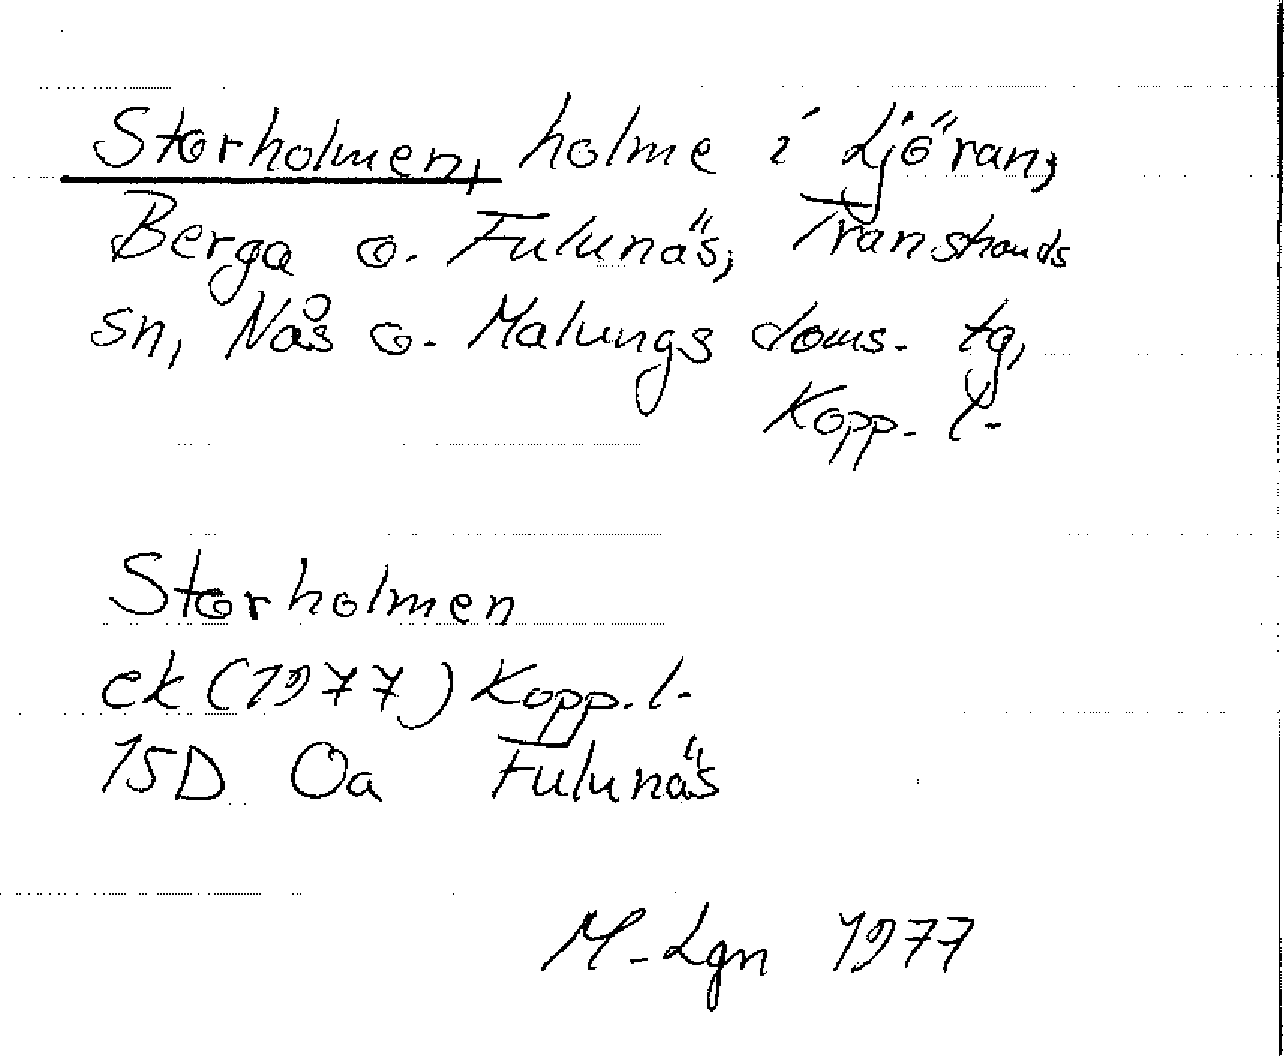 Storholmen, holme i Ljöran,
Berga o. Fulunäs, Transtrands
sn, Nås o. Malungs doms. tg,
Kopp. l.
Storholmen
ek (1977) Kopp. l.
15D 0a Fulunäs
M-Lgn 1977